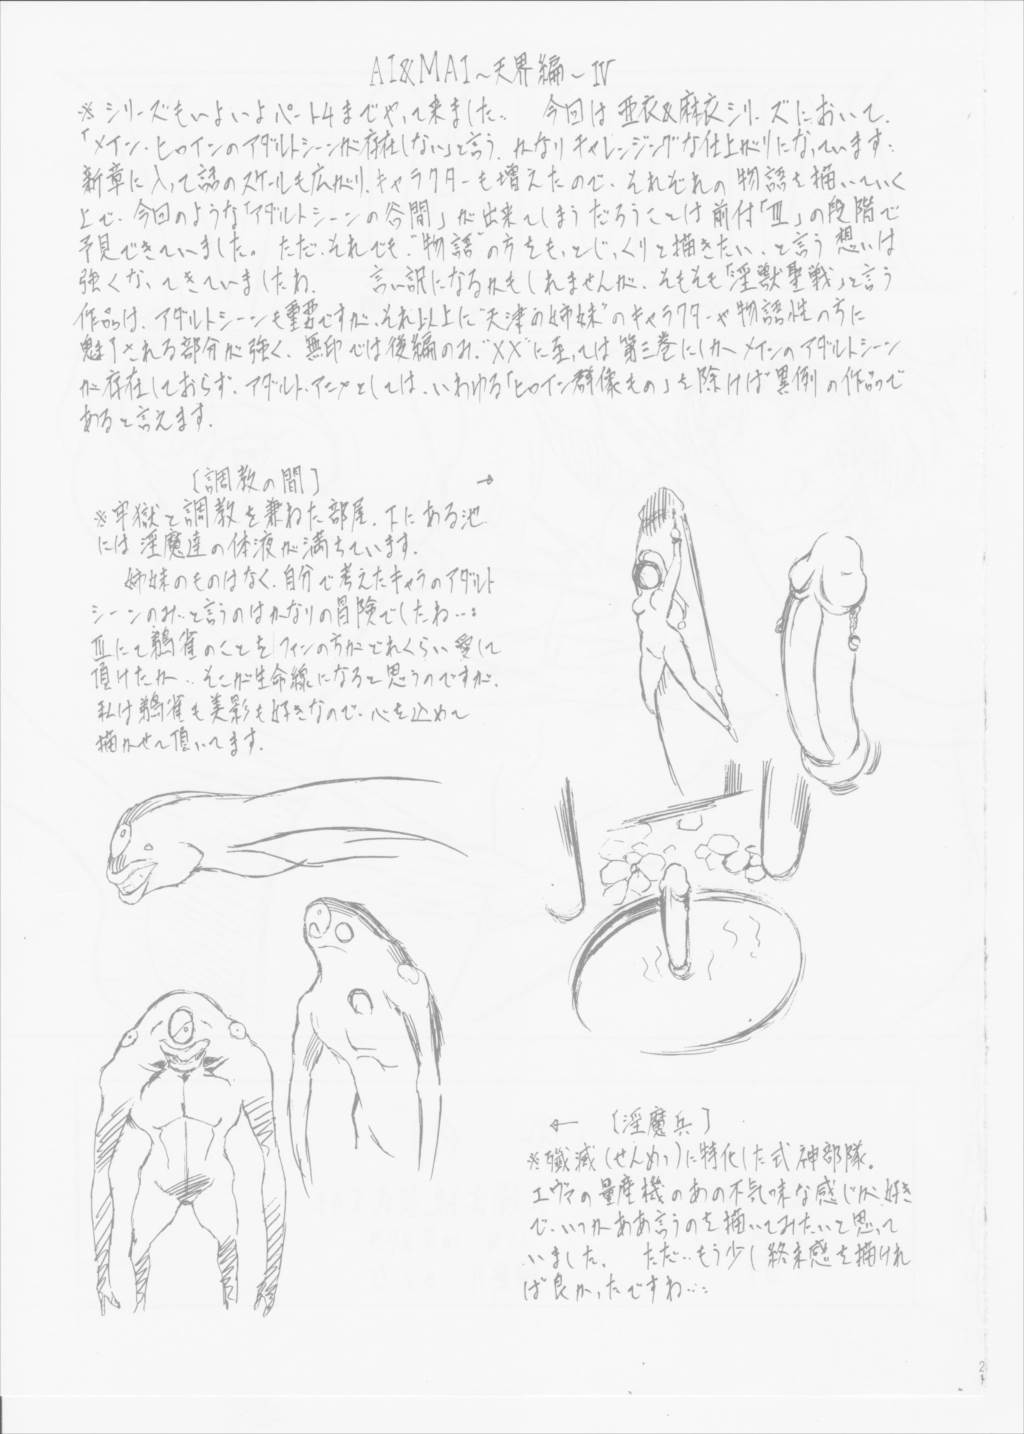 AI&MAI～天界編～Ⅳ
※シリーズもいよいよパート4までやって来ました‥ 今回は亜衣&麻衣シリーズにおいて、
「メイン・ヒロインのアダルトシーンが存在しない」と言う、かなりチャレンジングな仕上がりになっています‥
新章に入って話のスケールも広がり、キャラクターも増えたので、それぞれの物語を描いていく
上で、今回のような「アダルトシーンの谷間」が出来てしまうだろうことは前付「Ⅲ」の段階で
予見できていました。ただ、それでも“物語”の方をもっとじっくりと描きたい、と言う想いは
強くなってきていましたね. 言い訳になるかもしれませんが、そもそも「淫獣聖戦」と言う
作品は、アダルトシーンも重要ですが、それ以上に“天津の姉妹”のキャラクターや物語性の方に
魅了される部分が強く、無印では後編のみ、“XX”に至っては第三巻にしかメインのアダルトシーン
が存在しておらず、アダルト・アニメとしては、いわゆる「ヒロイン群像もの」を除けば異例の作品で
あると言えます.
［調教の間］ →
※牢獄と調教を兼ねた部屋. 下にある池
には淫魔達の体液が満ちています.
姉妹のものはなく、自分で考えたキャラのアダルト
シーンのみ‥と言うのはかなりの冒険でしたね‥‥
Ⅲにて鵺雀のことをファンの方がどれくらい愛して
頂けたか‥そこが生命線になると思うのですが、
私は鵺雀も美影も好きなので、心を込めて
描かせて頂いてます.
← ［淫魔兵］
※殲滅(せんめつ)に特化した式神部隊。
エヴァの量産機のあの不気味な感じが好き
で、いつかああ言うのを描いてみたいと思って
いました. ただ‥もう少し終末感を描けれ
ば良かったですね‥‥